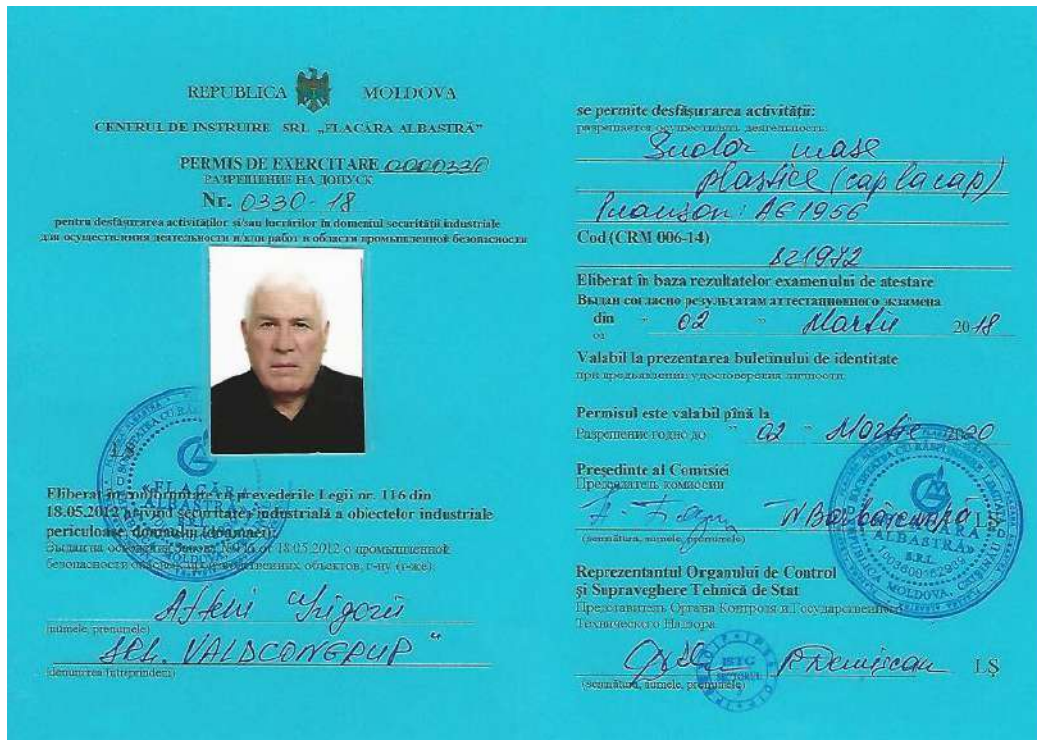 REPUBLICA MOLDOVA
CENTRUL DE INSTRUIRE SRL „FLACĂRA ALBASTRĂ”
PERMIS DE EXERCITARE 0000330
РАЗРЕШЕНИЕ НА ДОПУСК
Nr. 0330-18
pentru desfăşurarea activităţilor şi/sau lucrărilor în domeniul securităţii industriale
для осуществления деятельности и/или работ в области промышленной безопасности
Eliberat în conformitate cu prevederile Legii nr. 116 din
18.05.2012 privind securitatea industrială a obiectelor industriale
periculoase, domnului (doamnei):
Выдан на основании Закона №116 от 18.05.2012 о промышленной
безопасности опасных производственных объектов, г-ну (г-же):
Afteni Grigorii
(numele, prenumele)
SRL. VALDCONGRUP"
(denumirea întreprinderii)
se permite desfăşurarea activităţii:
разрешается осуществлять деятельность:
Sudor mase
plastice (cap la cap)
Poanson: AG1956
Cod (CRM 006-14)
Eliberat în baza rezultatelor examenului de atestare
Выдан согласно результатам аттестационного экзамена
din " 02 " Martie 2018
от
Valabil la prezentarea buletinului de identitate
при предъявлении удостоверения личности
Permisul este valabil pînă la
Разрешение годно до " 02 " Martie 2020
Preşedinte al Comisiei
Председатель комиссии
(semnătura, numele, prenumele)
Reprezentantul Organului de Control
şi Supraveghere Tehnică de Stat
Представитель Органа Контроля и Государственного
Технического Надзора
LŞ
(semnătura, numele, prenumele)
«FLACĂRA
ALBASTRĂ»
S.R.L.